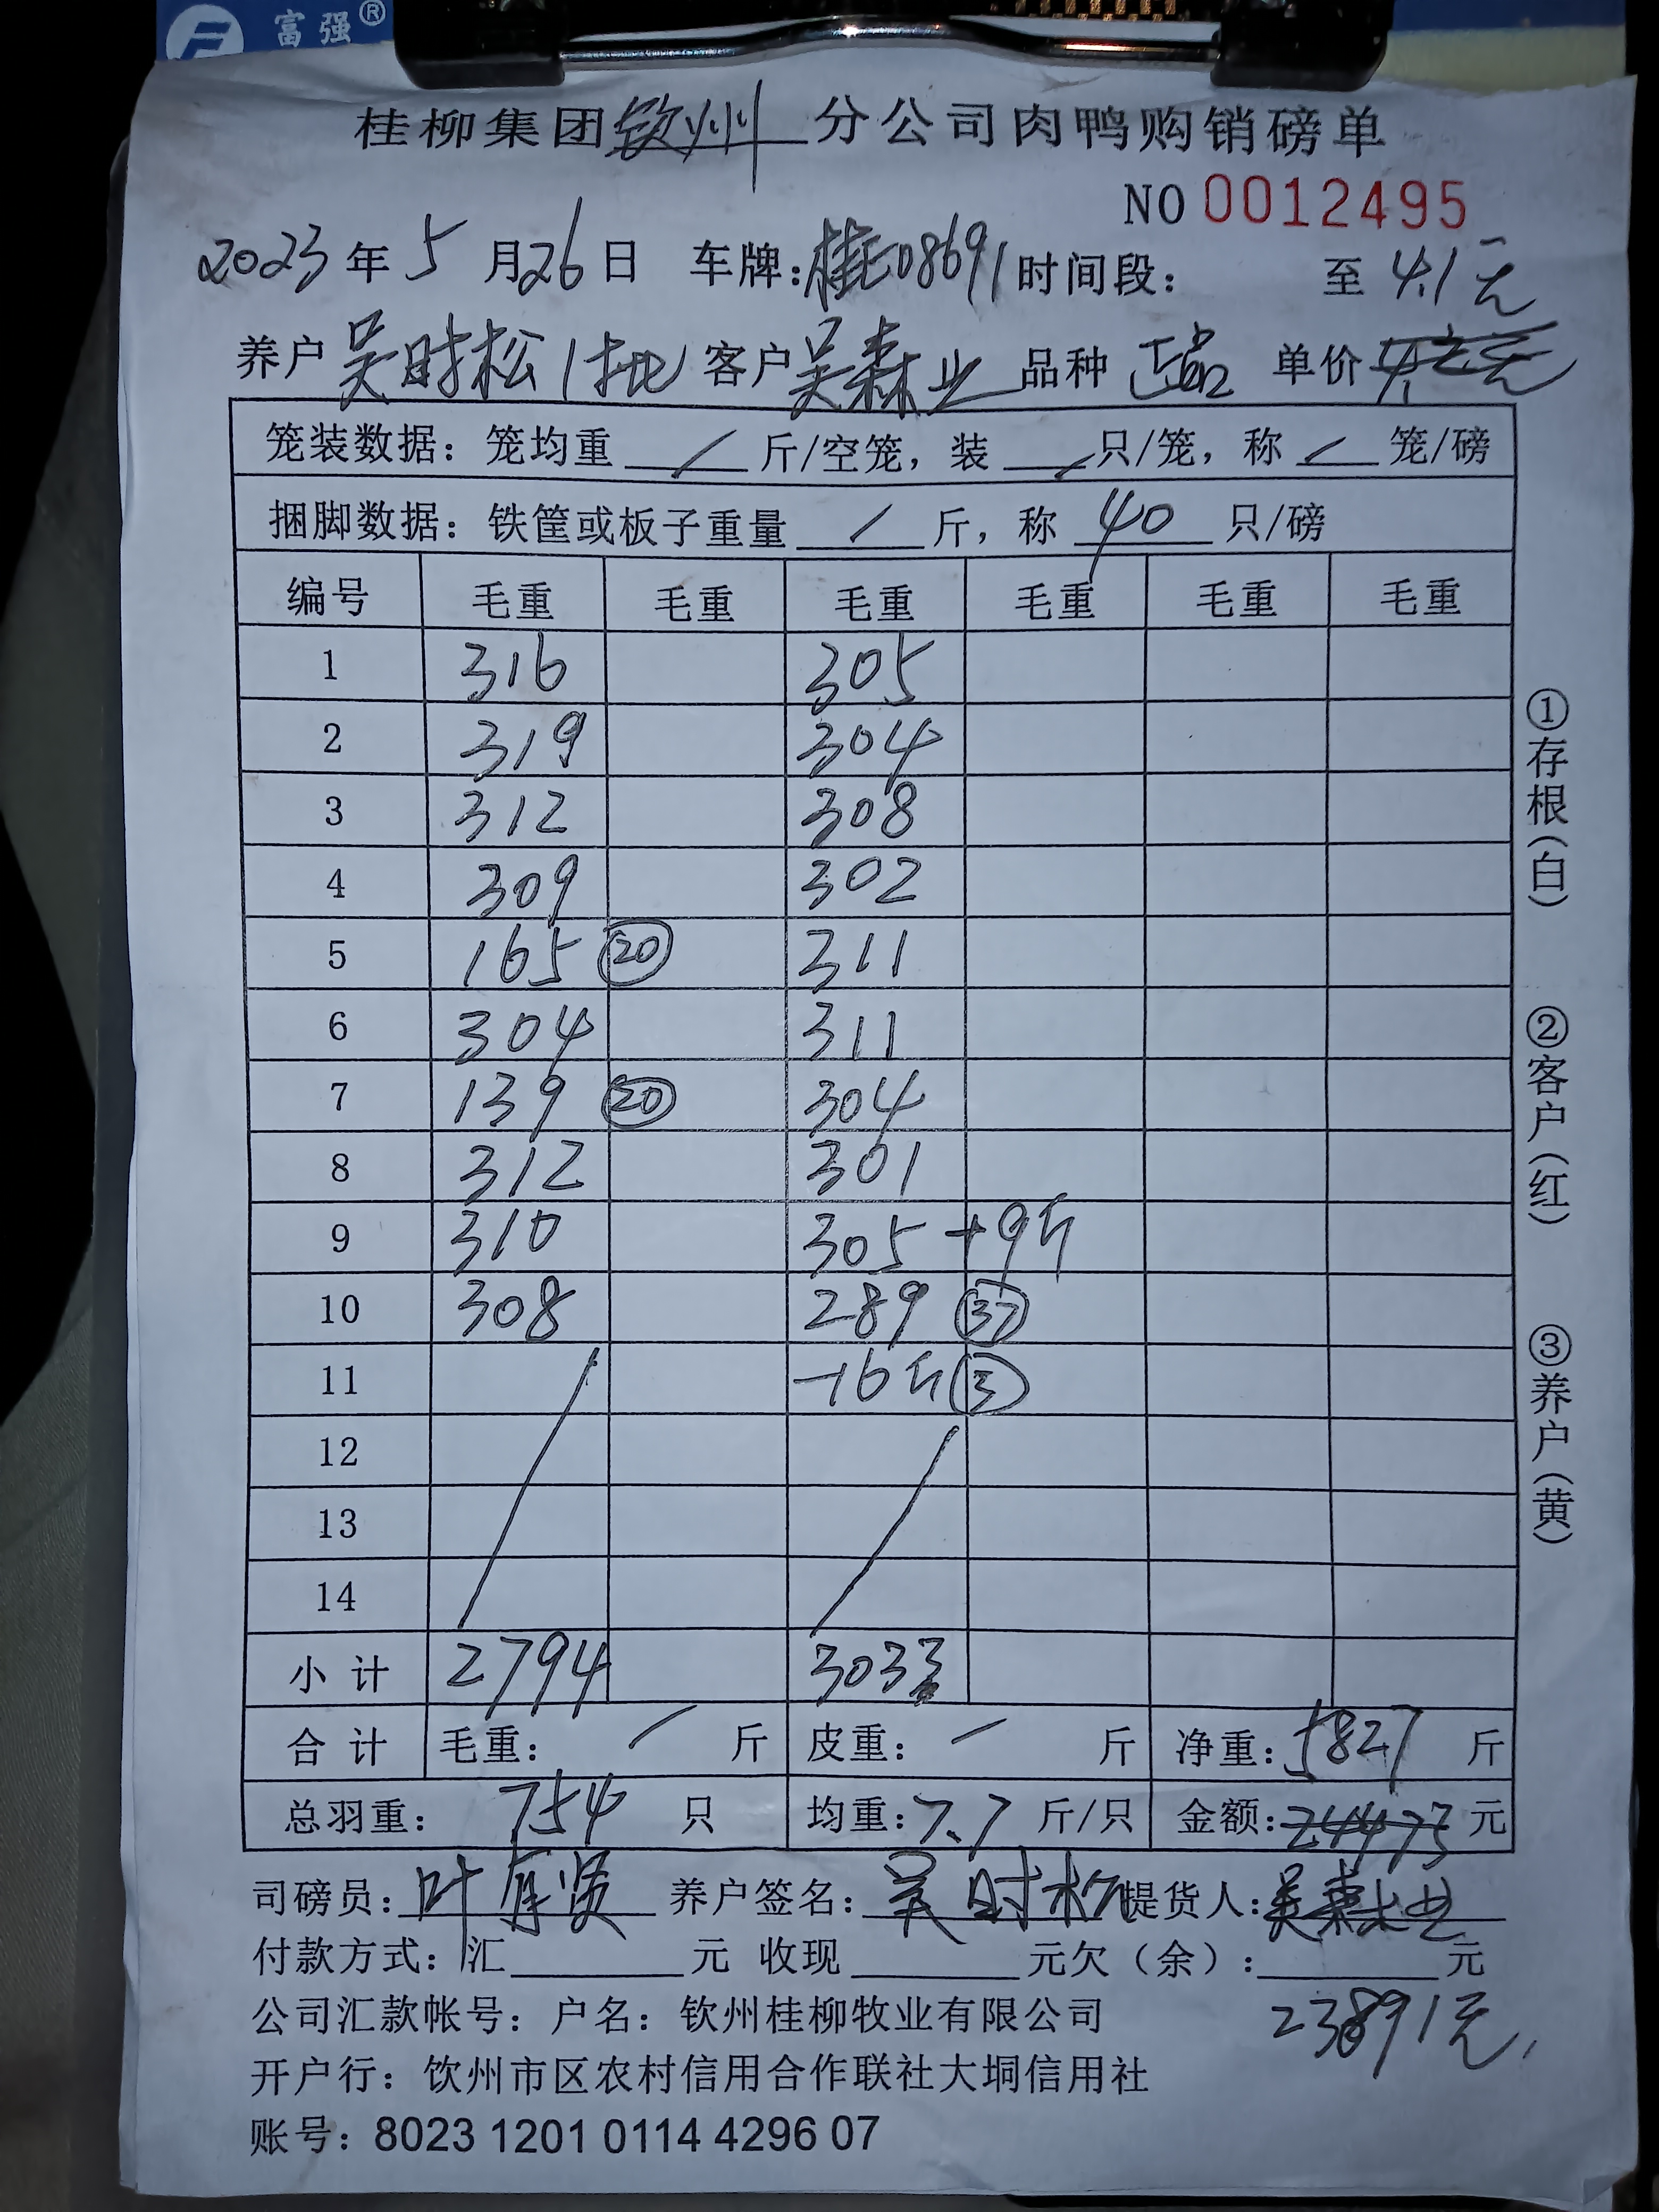 富强®
桂柳集团钦州分公司肉鸭购销磅单
NO 0012495
2023年5月26日 车牌:桂E08691 时间段: 至 4.1元
养户 吴时松1批 客户 吴森业 品种 正品 单价 4.2元
笼装数据：笼均重 / 斤/空笼，装 / 只/笼，称 / 笼/磅
捆脚数据：铁筐或板子重量 / 斤，称 40 只/磅
编号 毛重 毛重 毛重 毛重 毛重 毛重
1 316 305
2 319 304
3 312 308
4 309 302
5 165 ⑳ 311
6 304 311
7 139 ⑳ 304
8 312 301
9 310 305 +9斤
10 308 289 ㊲
11 -16斤 ③
12
13
14
小计 2794 3033
合计 毛重： / 斤 皮重： / 斤 净重：5827 斤
总羽重： 754 只 均重：7.7 斤/只 金额：24473 元
司磅员：叶 贤 养户签名：吴时松 提货人：吴森业
付款方式：汇 元 收现 元欠（余）： 元
公司汇款帐号：户名：钦州桂柳牧业有限公司 23891元
开户行：钦州市区农村信用合作联社大垌信用社
账号：8023 1201 0114 4296 07
①存根(白)
②客户(红)
③养户(黄)